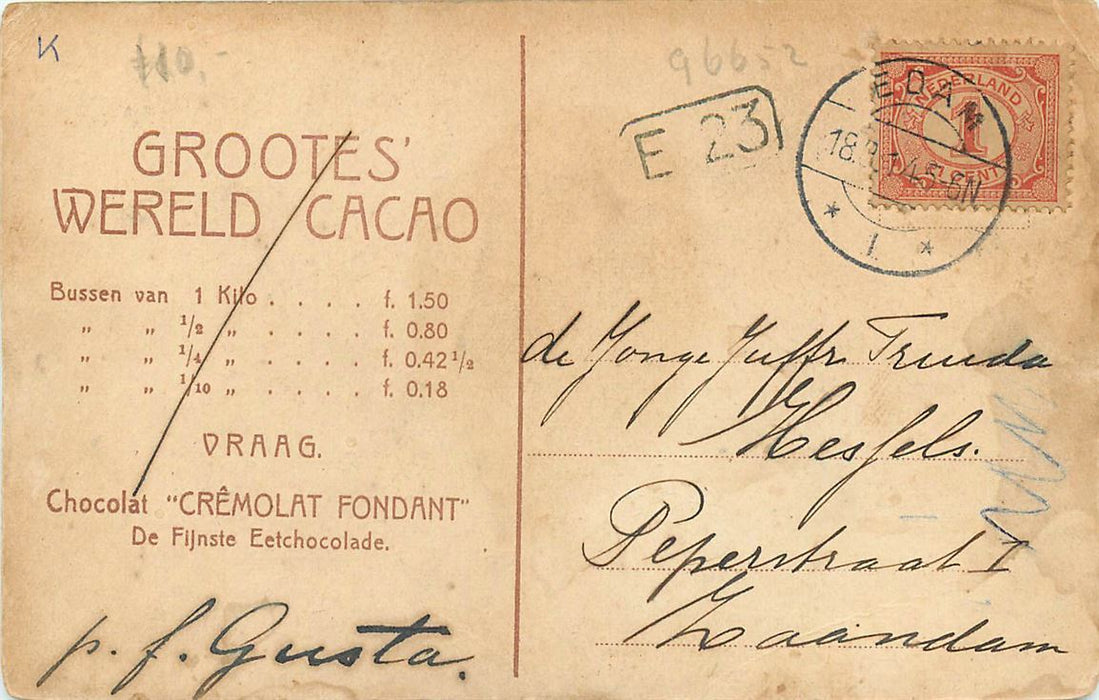 K
f10,-
96652
GROOTES'
WERELD CACAO
Bussen van 1 Kilo . . . . f. 1.50
„ „ 1/2 „ . . . . f. 0.80
„ „ 1/4 „ . . . . f. 0.42 1/2
„ „ 1/10 „ . . . . f. 0.18
VRAAG.
Chocolat "CRÊMOLAT FONDANT"
De Fijnste Eetchocolade.
p. f. Gusta.
E 23
EDAM
5-6N
1.
NEDERLAND
1
CENT
de Jonge Juffr Truida
Hessels.
Peperstraat I
Zaandam